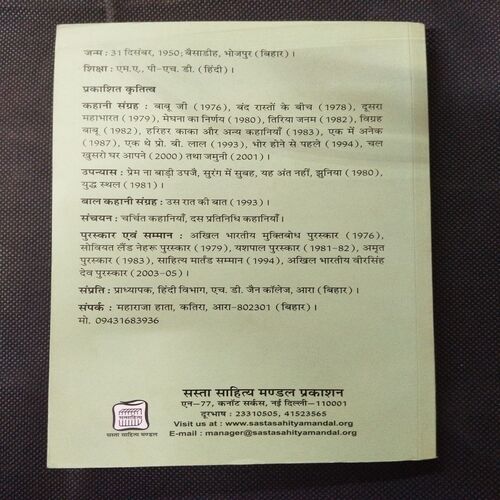 जन्म : 31 दिसंबर, 1950; बैसाडीह, भोजपुर (बिहार)।
शिक्षा : एम.ए., पी-एच. डी. (हिंदी)।
प्रकाशित कृतित्व
कहानी संग्रह : बाबू जी (1976), बंद रास्तों के बीच (1978), दूसरा
महाभारत (1979), मेघना का निर्णय (1980), तिरिया जनम (1982), विग्रह
बाबू (1982), हरिहर काका और अन्य कहानियाँ (1983), एक में अनेक
(1987), एक थे प्रो. बी. लाल (1993), भोर होने से पहले (1994), चल
खुसरो घर आपने (2000) तथा जमुनी (2001)।
उपन्यास : प्रेम ना बाड़ी उपजै, सुरंग में सुबह, यह अंत नहीं, झुनिया (1980),
युद्ध स्थल (1981)।
बाल कहानी संग्रह : उस रात की बात (1993)।
संचयन : चर्चित कहानियाँ, दस प्रतिनिधि कहानियाँ।
पुरस्कार एवं सम्मान : अखिल भारतीय मुक्तिबोध पुरस्कार (1976),
सोवियत लैंड नेहरू पुरस्कार (1979), यशपाल पुरस्कार (1981-82), अमृत
पुरस्कार (1983), साहित्य मार्तंड सम्मान (1994), अखिल भारतीय वीरसिंह
देव पुरस्कार (2003-05)।
संप्रति : प्राध्यापक, हिंदी विभाग, एच. डी. जैन कॉलेज, आरा (बिहार)।
संपर्क : महाराजा हाता, कतिरा, आरा-802301 (बिहार)।
मो. 09431683936
सस्ता साहित्य मण्डल प्रकाशन
एन-77, कनॉट सर्कस, नई दिल्ली-110001
दूरभाष : 23310505, 41523565
Visit us at : www.sastasahityamandal.org
E-mail : manager@sastasahityamandal.org
सस्ता साहित्य मण्डल